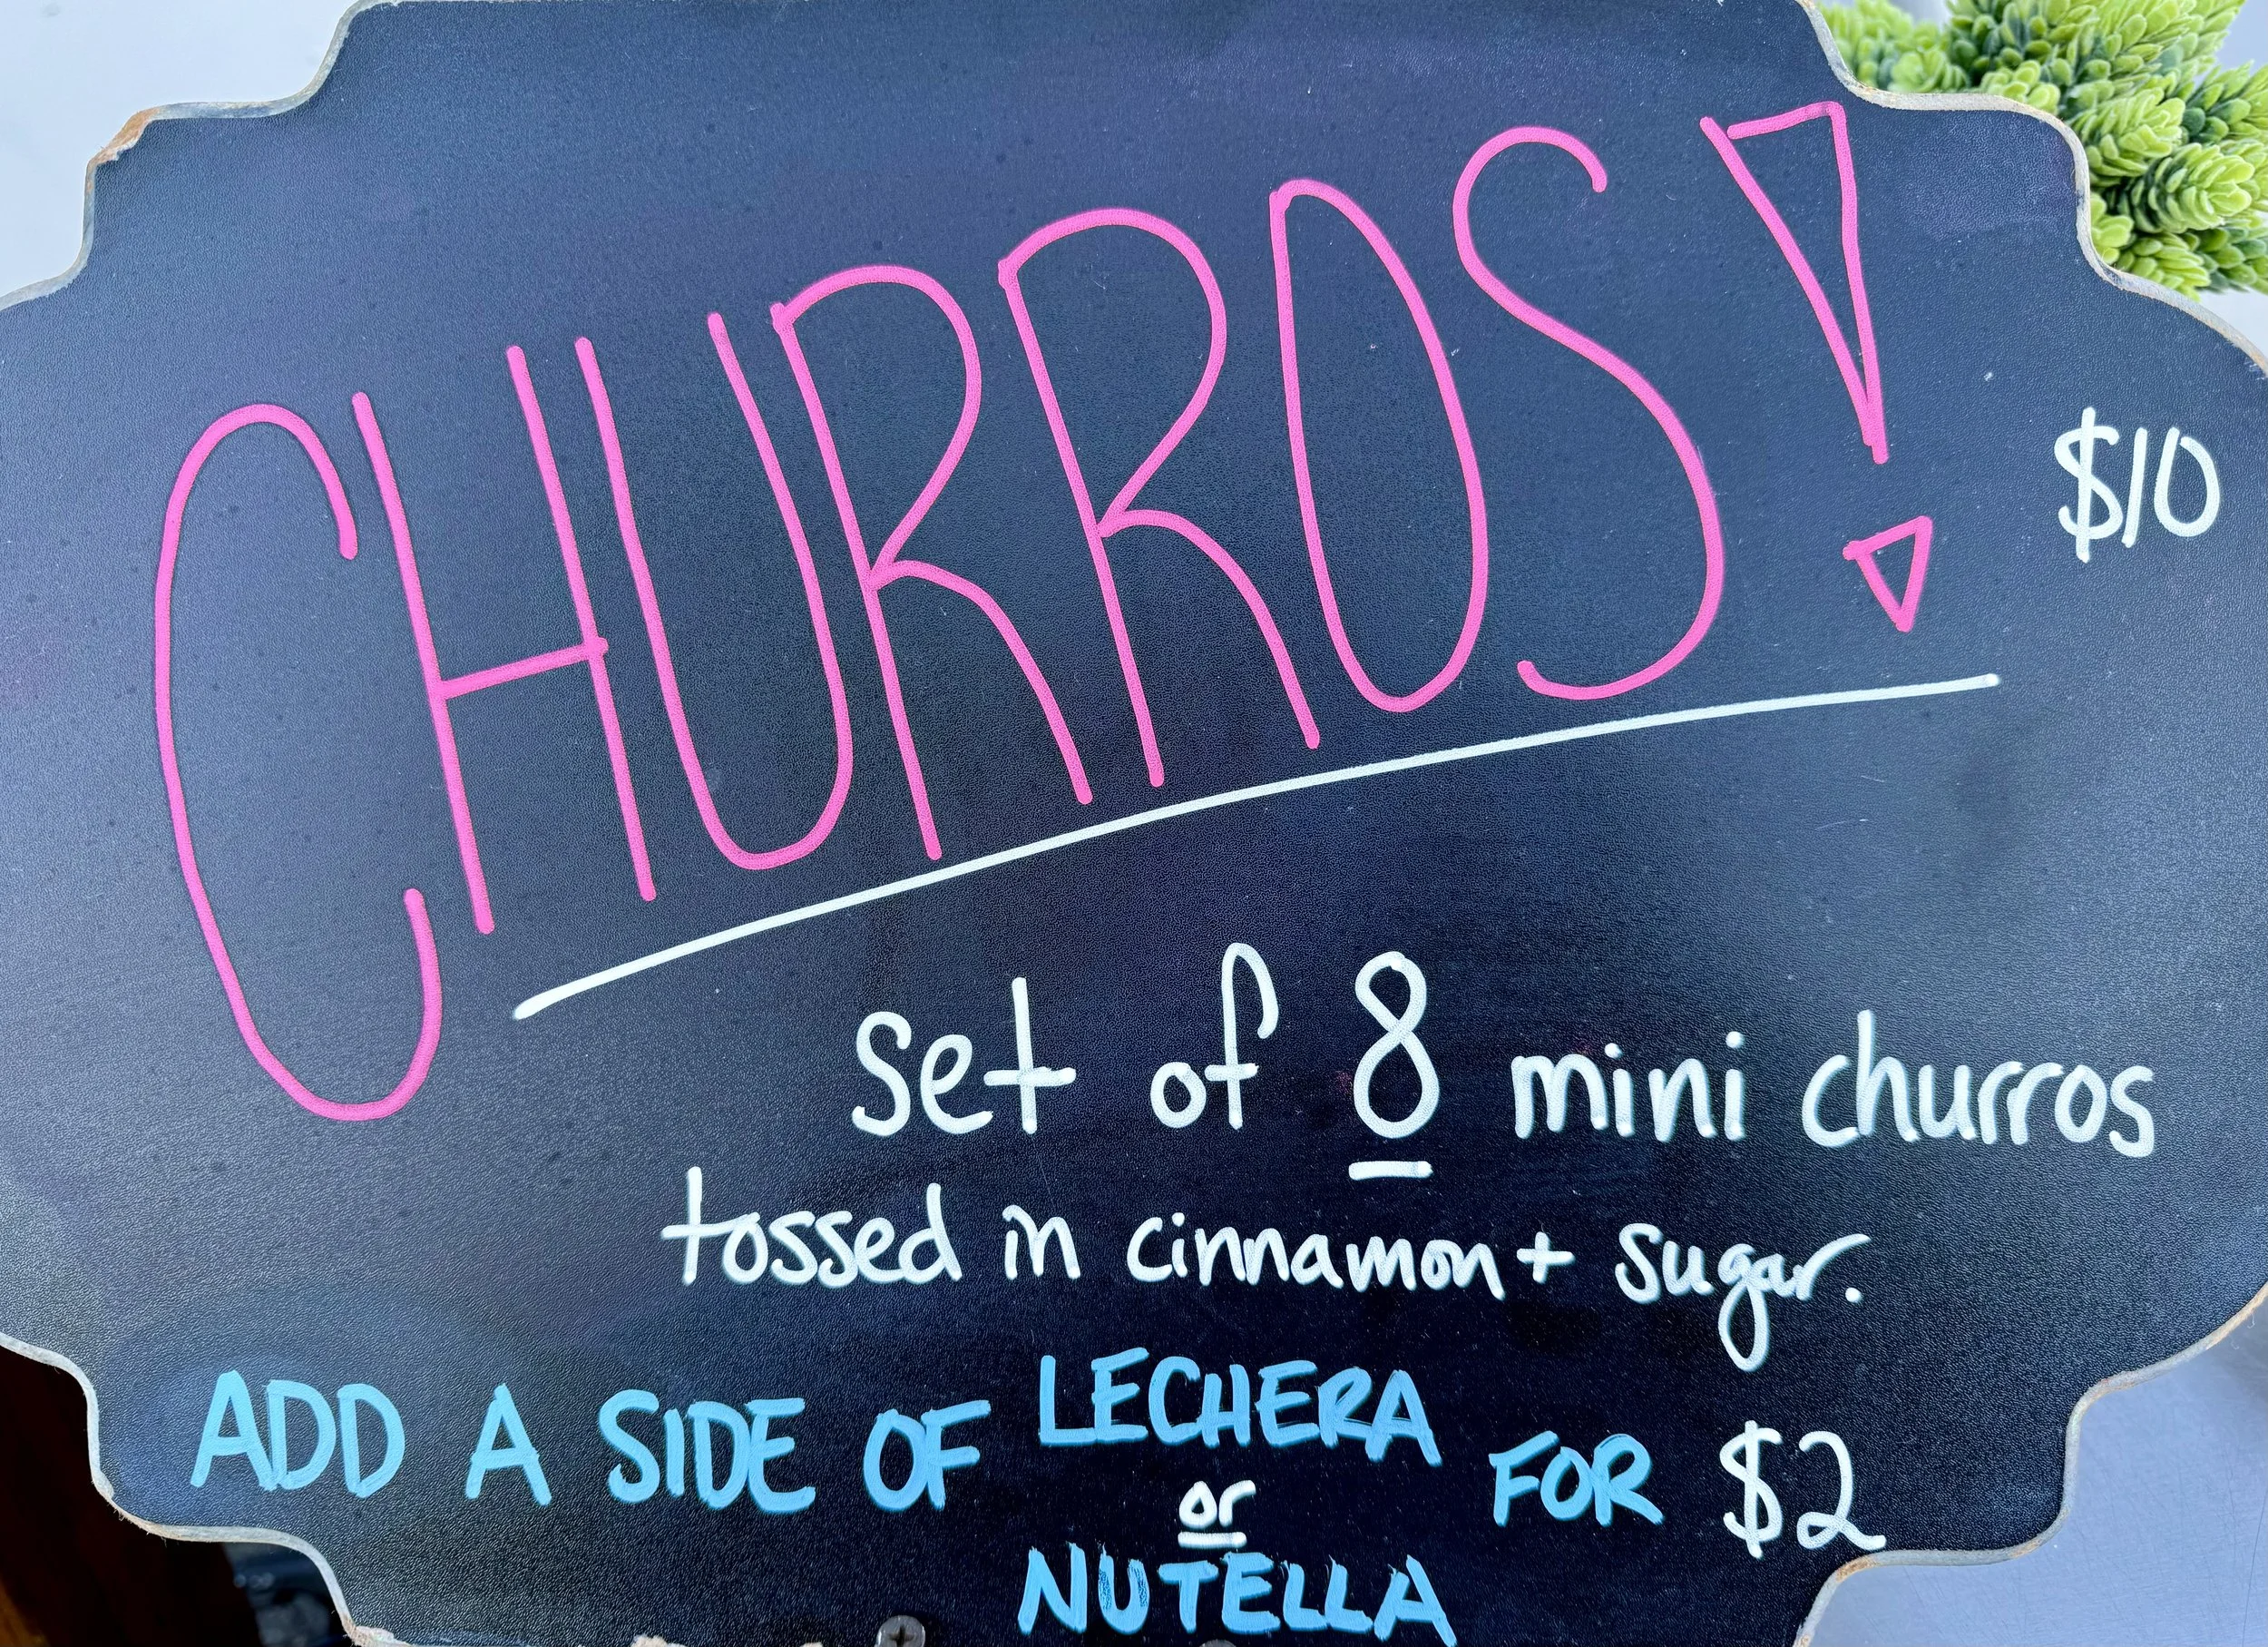 CHURROS!
$10
set of 8 mini churros
tossed in cinnamon + sugar.
ADD A SIDE OF LECHERA
or
NUTELLA
FOR $2